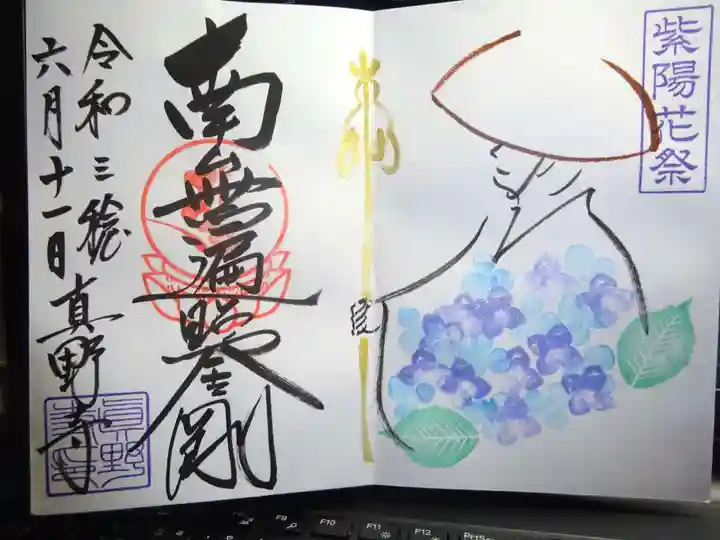 紫陽花祭
南無遍照金剛
令和三稔
六月十一日真野寺
F9
F10
F11
F12
PrtSc